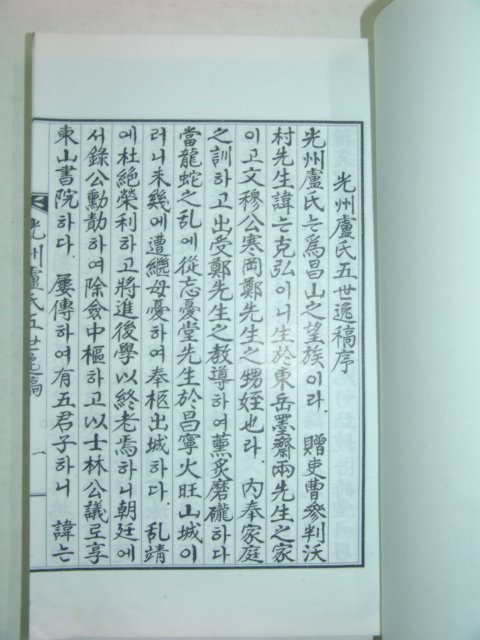 光州盧氏五世逸稿序
光州盧氏는爲昌山之望族이라. 贈吏曹參判沃
村先生諱는克弘이니生於東岳墨齋兩先生之家
이고文穆公寒岡鄭先生之甥姪也라. 內奉家庭
之訓하고出受鄭先生之教導하여薰炙磨礲하다
當龍蛇之乱에從忘憂堂先生於昌寧火旺山城이
러니未幾에遭繼母憂하여奉柩出城하다. 乱靖
에杜絶榮利하고將進後學以終老焉하니朝廷에
서錄公勳勣하여除僉中樞하고以士林公議로享
東山書院하다. 屢傳하여有五君子하니 諱는
光州盧氏五世逸稿 一